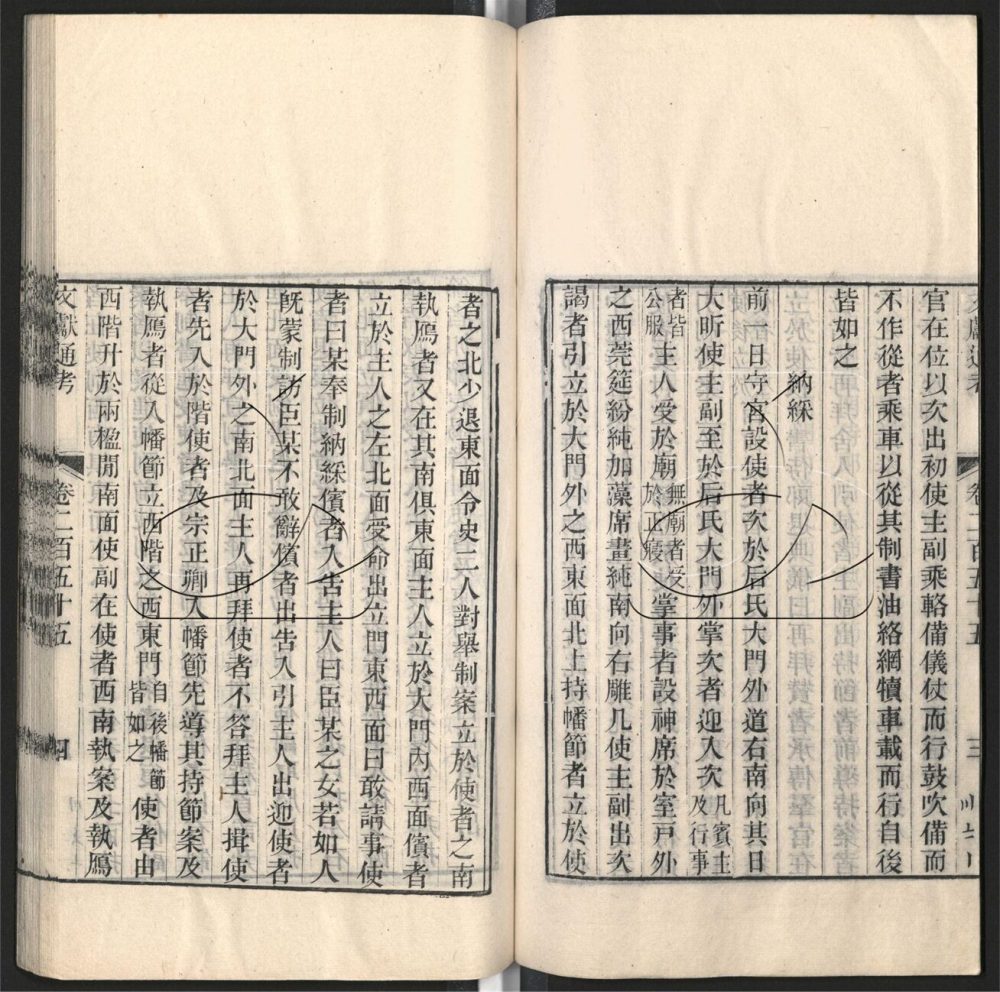 官在位以次出初使主副乘輅備儀仗而行鼓吹備而
不作從者乘車以從其制書油絡網犢車載而行自後
皆如之
納綵
前一日守宮設使者次於后氏大門外道右南向其日
大昕使主副至於后氏大門外掌次者迎入次凡賓主及行事
者皆公服主人受於廟無廟者受於正寢掌事者設神席於室戶外
之西莞筵紛純加藻席畫純南向右雕几使主副出次
謁者引立於大門外之西東面北上持幡節者立於使
者之北少退東面令史二人對舉制案立於使者之南
執鴈者又在其南俱東面主人立於大門內西面儐者
立於主人之左北面受命出立門東西面曰敢請事使
者曰某奉制納綵儐者入告主人曰臣某之女若如人
旣蒙制訪臣某不敢辭儐者出告入引主人出迎使者
於大門外之南北面主人再拜使者不答拜主人揖使
者先入於階使者及宗正卿入幡節先導其持節案及
執鴈者從入幡節立西階之西東門自後幡節皆如之使者由
西階升於兩楹閒南面使副在使者西南執案及執鴈
文獻通考 卷二百五十五 四